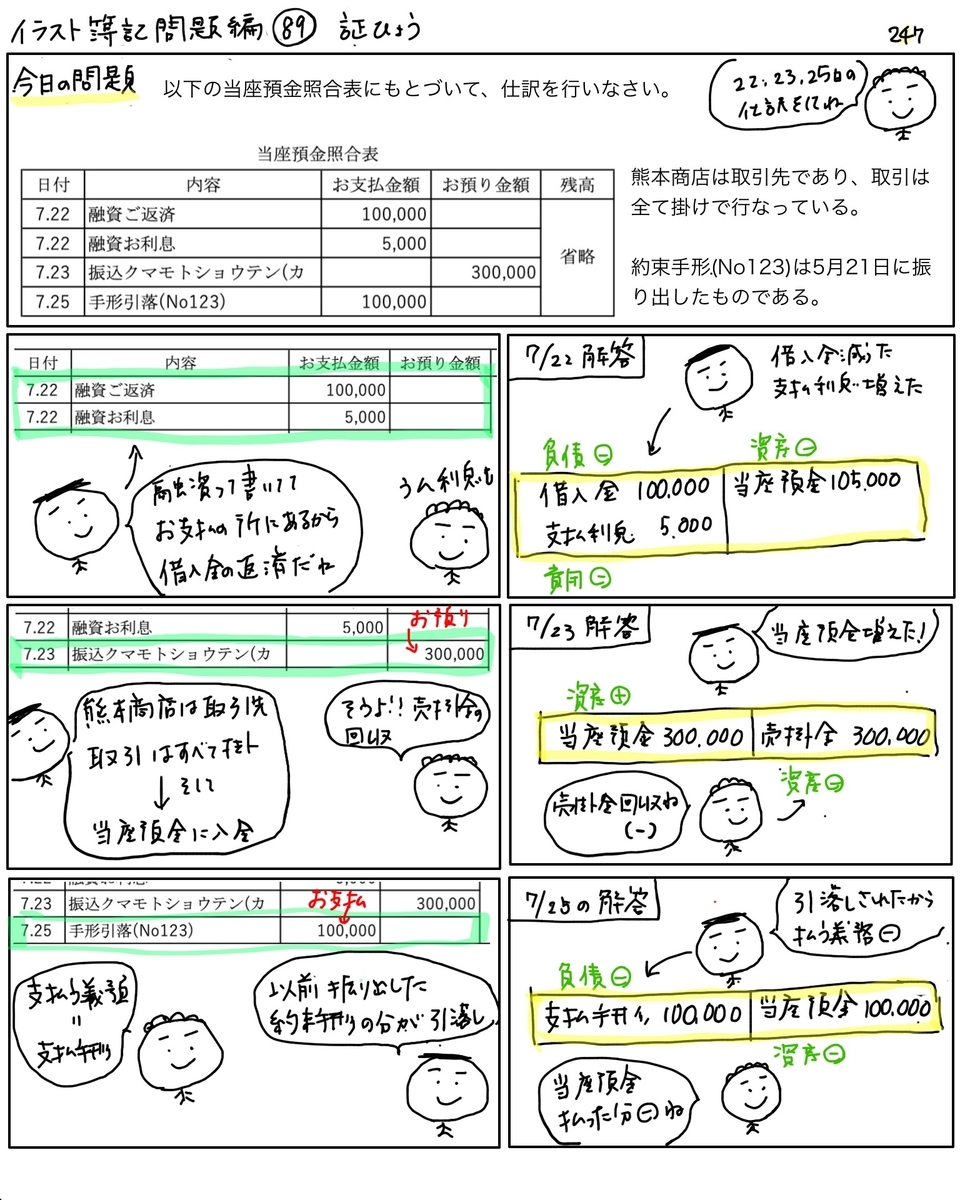 イラスト簿記問題編 89 証ひょう
247
今日の問題
以下の当座預金照合表にもとづいて、仕訳を行いなさい。
22,23,25日の
仕訳をしてね
当座預金照合表
日付 内容 お支払金額 お預り金額 残高
7.22 融資ご返済 100,000
7.22 融資お利息 5,000
省略
7.23 振込クマモトショウテン(カ 300,000
7.25 手形引落(No123) 100,000
熊本商店は取引先であり、取引は
全て掛けで行なっている。
約束手形(No123)は5月21日に振
り出したものである。
日付 内容 お支払金額 お預り金額
7.22 融資ご返済 100,000
7.22 融資お利息 5,000
融資って書いてて
お支払の所にあるから
借入金の返済だね
うん利息も
7/22 解答
借入金減った
支払利息増えた
負債㊀ 資産㊀
借入金 100,000 当座預金 105,000
支払利息 5,000
費用㊀
7.22 融資お利息 5,000
お預り
7.23 振込クマモトショウテン(カ 300,000
熊本商店は取引先
取引はすべて掛け
↓ そして
当座預金に入金
そうよ!! 売掛金の
回収
7/23 解答
当座預金増えた!
資産⊕
当座預金 300,000 売掛金 300,000
資産㊀
売掛金回収ね
(-)
7.23 振込クマモトショウテン(カ 300,000
お支払
7.25 手形引落(No123) 100,000
支払う義務
=
支払手形
以前振り出した
約束手形の分が引落し
7/25の解答
引落しされたから
払う義務㊀
負債㊀
支払手形 100,000 当座預金 100,000
資産㊀
当座預金
払った分㊀ね